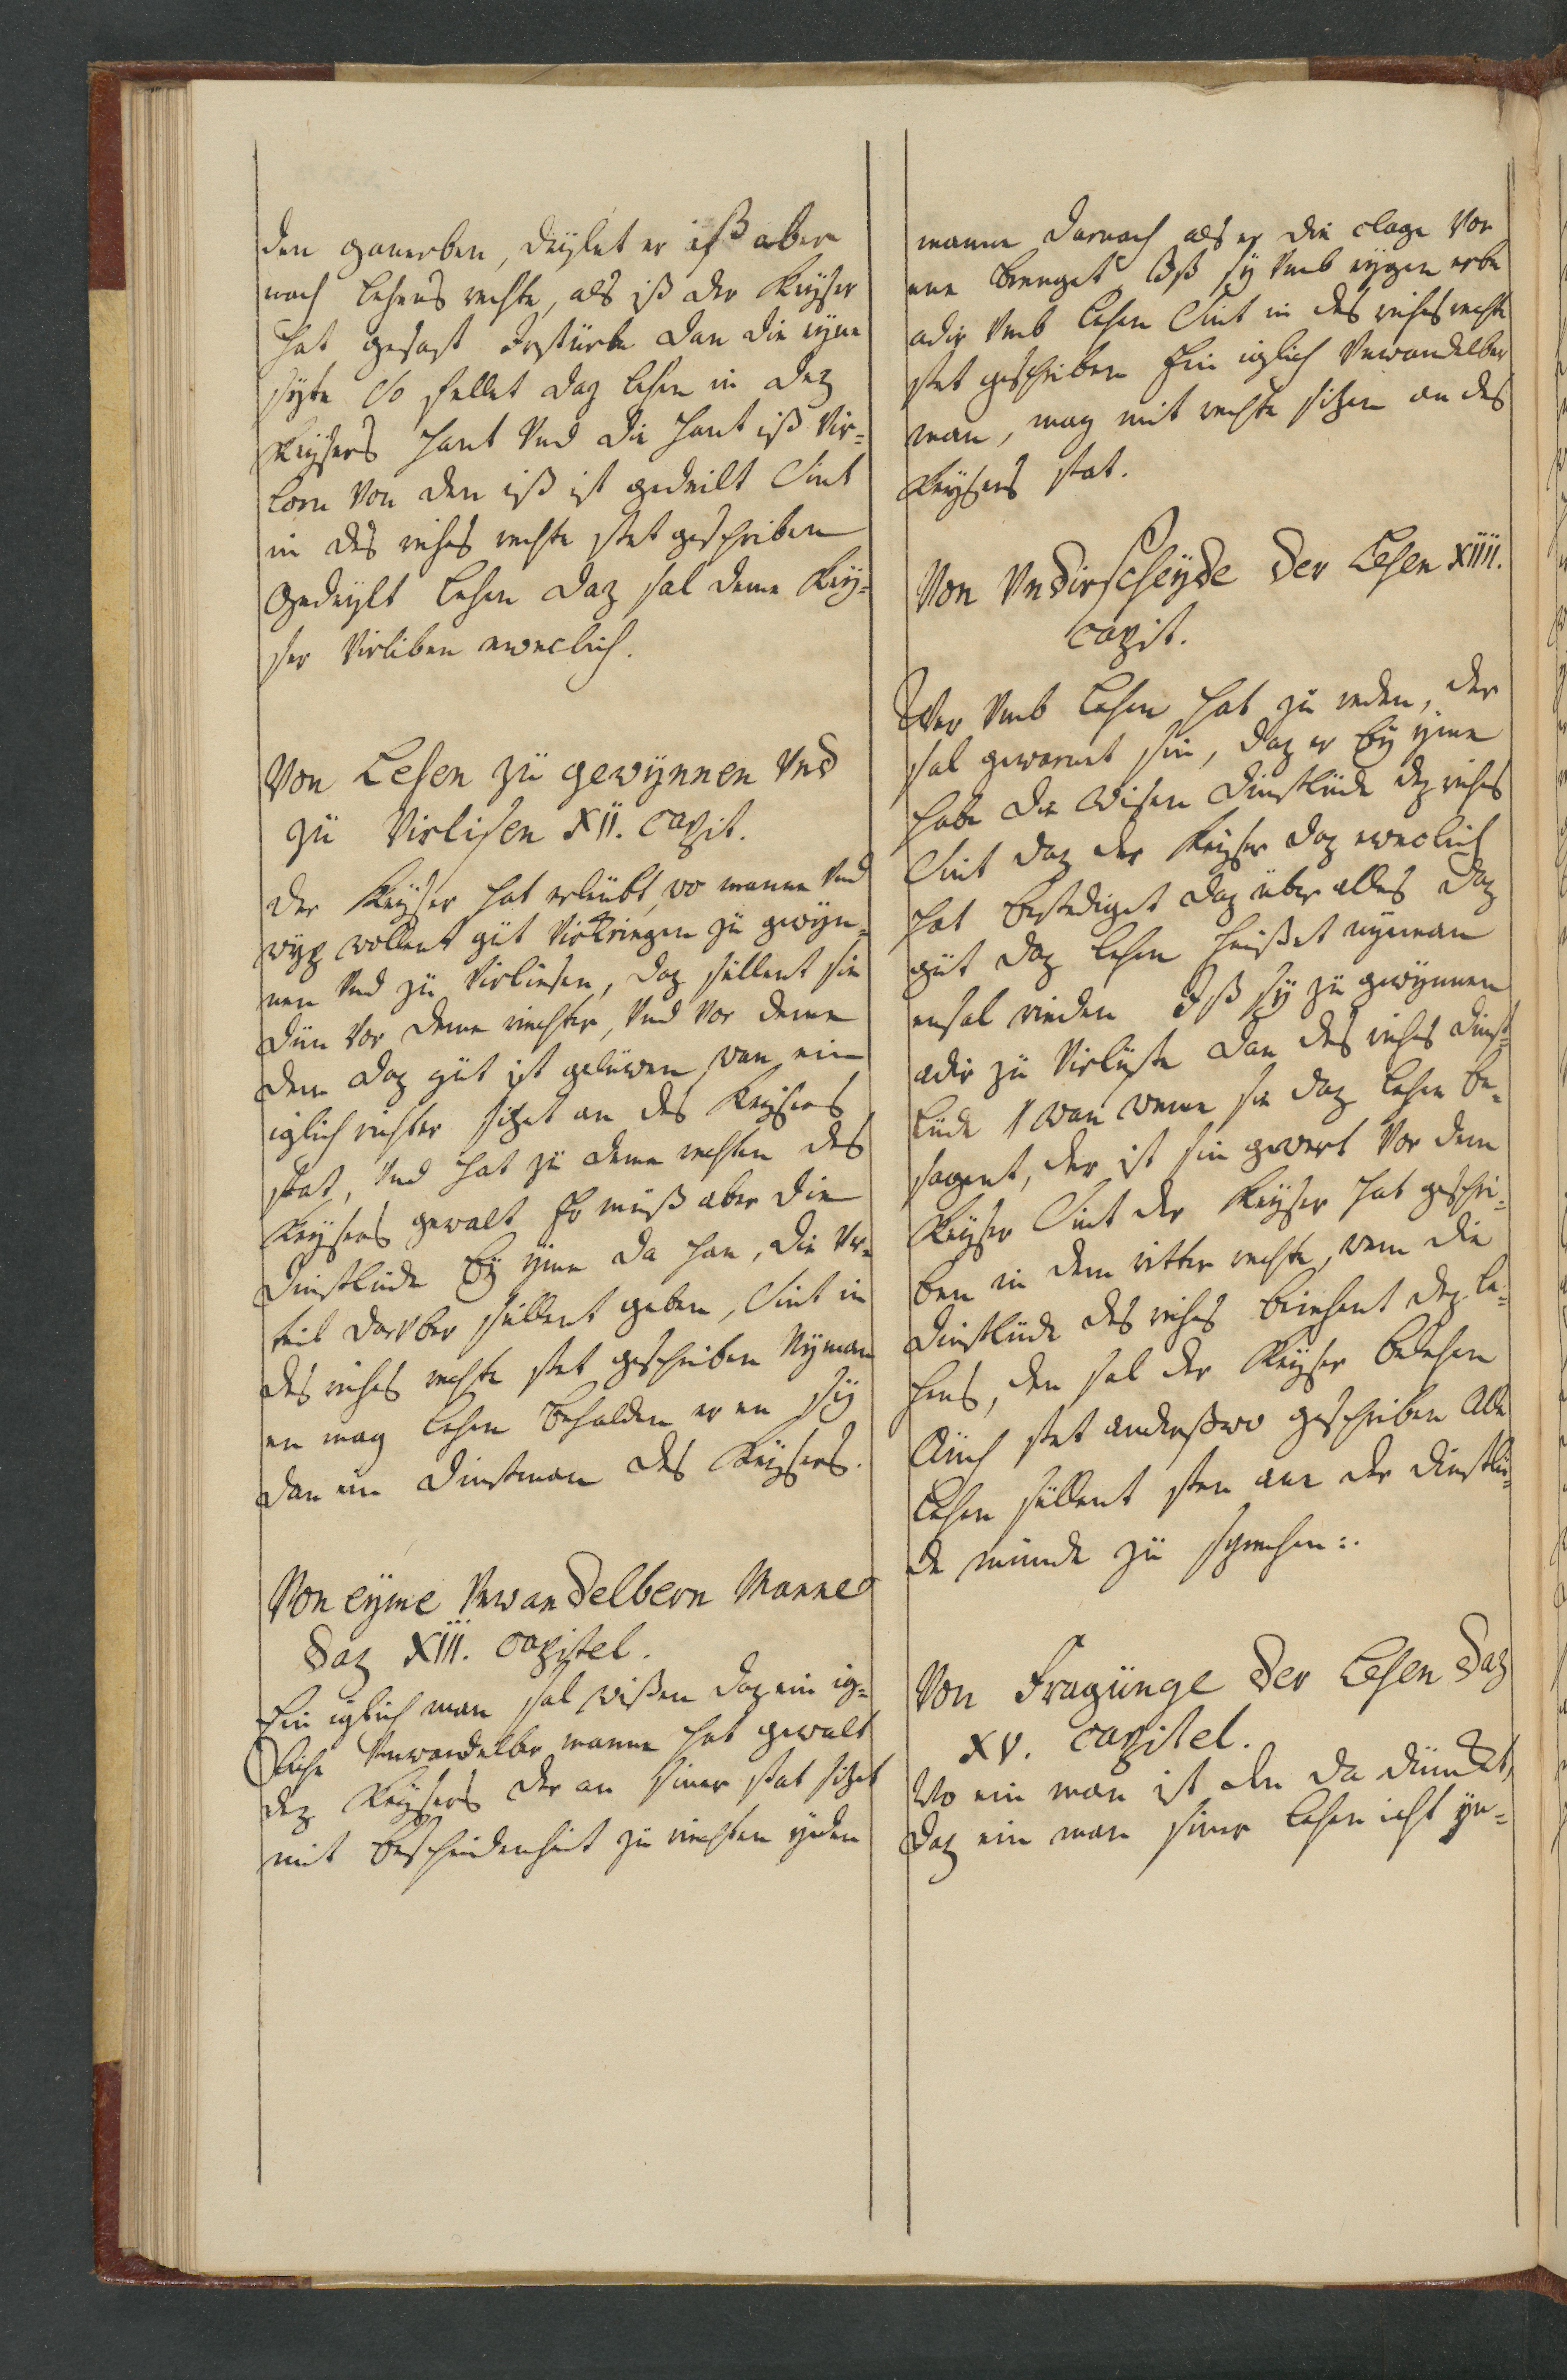 den ganerben, deylet er iß aber
nach lehens rechte, als iß der Keyser
hat gesast Irstürbe dan die eyne
syte So fellet daz lehen in dez
Keysers hant Vnd die hant iß Vir-
lorn Von den iß ist gedeilt Sint
in des riches rechte stet geschriben
Gedeylt lehen daz sal deme Key-
ser Virliben eweclich.
Von Lehen zü gewÿnnen Vnd
zü Virlisen XII. capit.
Der Keyser hat erleübt, wo manne Vnd
wyp wollent güt Virkriegen zü gewyn-
nen Vnd zü Virliesen, daz süllent sie
dün Vor deme riechter, Vnd Vor deme
dem daz güt ist geluwen, wan ein
iglich richter sitzet an des Keysers
stat, Vnd hat zü deme rechten des
Keysers gewalt Er müß aber die
dinstlüde by yme da han, die Vr-
teil darVber süllent geben, Sint in
des riches rechte stet geschriben Nyman
en mag lehen behalden er en sy
dan ein dinstman des Keysers.
Von eyme Vnwandelbern Manne
daz XIII. capitel.
Ein iglich man sal wißen daz ein ig-
lich Vnwandelber manne hat gewalt
dez Keysers der an siner stat sitzet
mit bescheidenheit zü riechten yeden
manne darnach als er die clage Vor
ene brenget Iß sy Vmb eygen erbe
adir Vmb lehen Sint in des riches rechte
stet geschriben Ein iglich Vnwandelber
man, mag mit rechte sitzen an des
Keysers stat.
Von Vndirscheyde der Lehen XIIII.
capit.
Wer Vmb lehen hat zü reden, der
sal gewarnet sin, daz er by yme
habe die wisen dinstlüde dez riches
Sint daz der Keyser daz eweclich
hat bestediget daz über alles daz
güt daz lehen heißet nyeman
ensal rieden Iß sy zü gewynnen
adir zü Virlüste dan des riches dinst-
lüde wan weme sie daz lehen be-
sagent, der ist sin gewert Vor dem
Keyser Sint der Keyser hat geschri-
ben in dem ritter rechte, wem die
dinstlüde des riches beiehent dez le-
hens, den sal der Keyser belehen
Auch stet anderßwo geschriben Alle
lehen süllent sten ane der dinstlü-
de münde zü sprechen:.
Von Fragünge der Lehen daz
XV. capitel.
Wo ein man ist den da dünket,
daz ein man siner lehen icht yn-